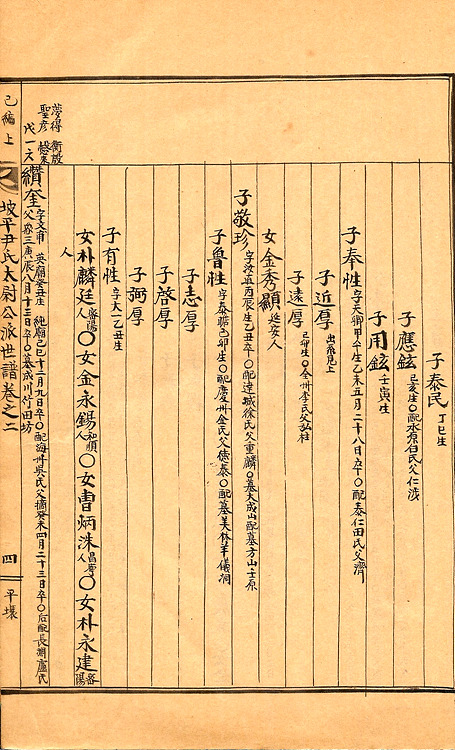 子泰民丁巳生
子應鉉己亥生○配水原白氏父仁涉
子用鉉壬寅生
子奉性字天卿甲午生乙未五月二十八日卒○配泰仁田氏父濟
子近厚出飛見上
子遠厚己卯生○全州李氏父弘柱
女金秀顯延安人
子敬珍字汝直丙辰生乙丑卒○配達城徐氏父重麟○墓大成山配墓方山壬原
子魯性字泰瞻己卯生○配慶州金氏父德泰○配墓美林羊儀洞
子志厚
子啓厚
子弼厚
子有性字大一乙丑生
女朴麟廷密陽人○女金永錫和順人○女曺炳洙昌寧人○女朴永建密陽
人
夢得 衡殷
聖彦
戊一文
纘奎字文甫 英廟癸丑生 純廟己巳十二月九日卒○配海州吳氏父
父 三庚辰八月十三日卒○墓成川竹田坊 癸未四月二十三日卒○后配長淵盧氏
己編上
坡平尹氏太尉公派世譜卷之二
四
平壤